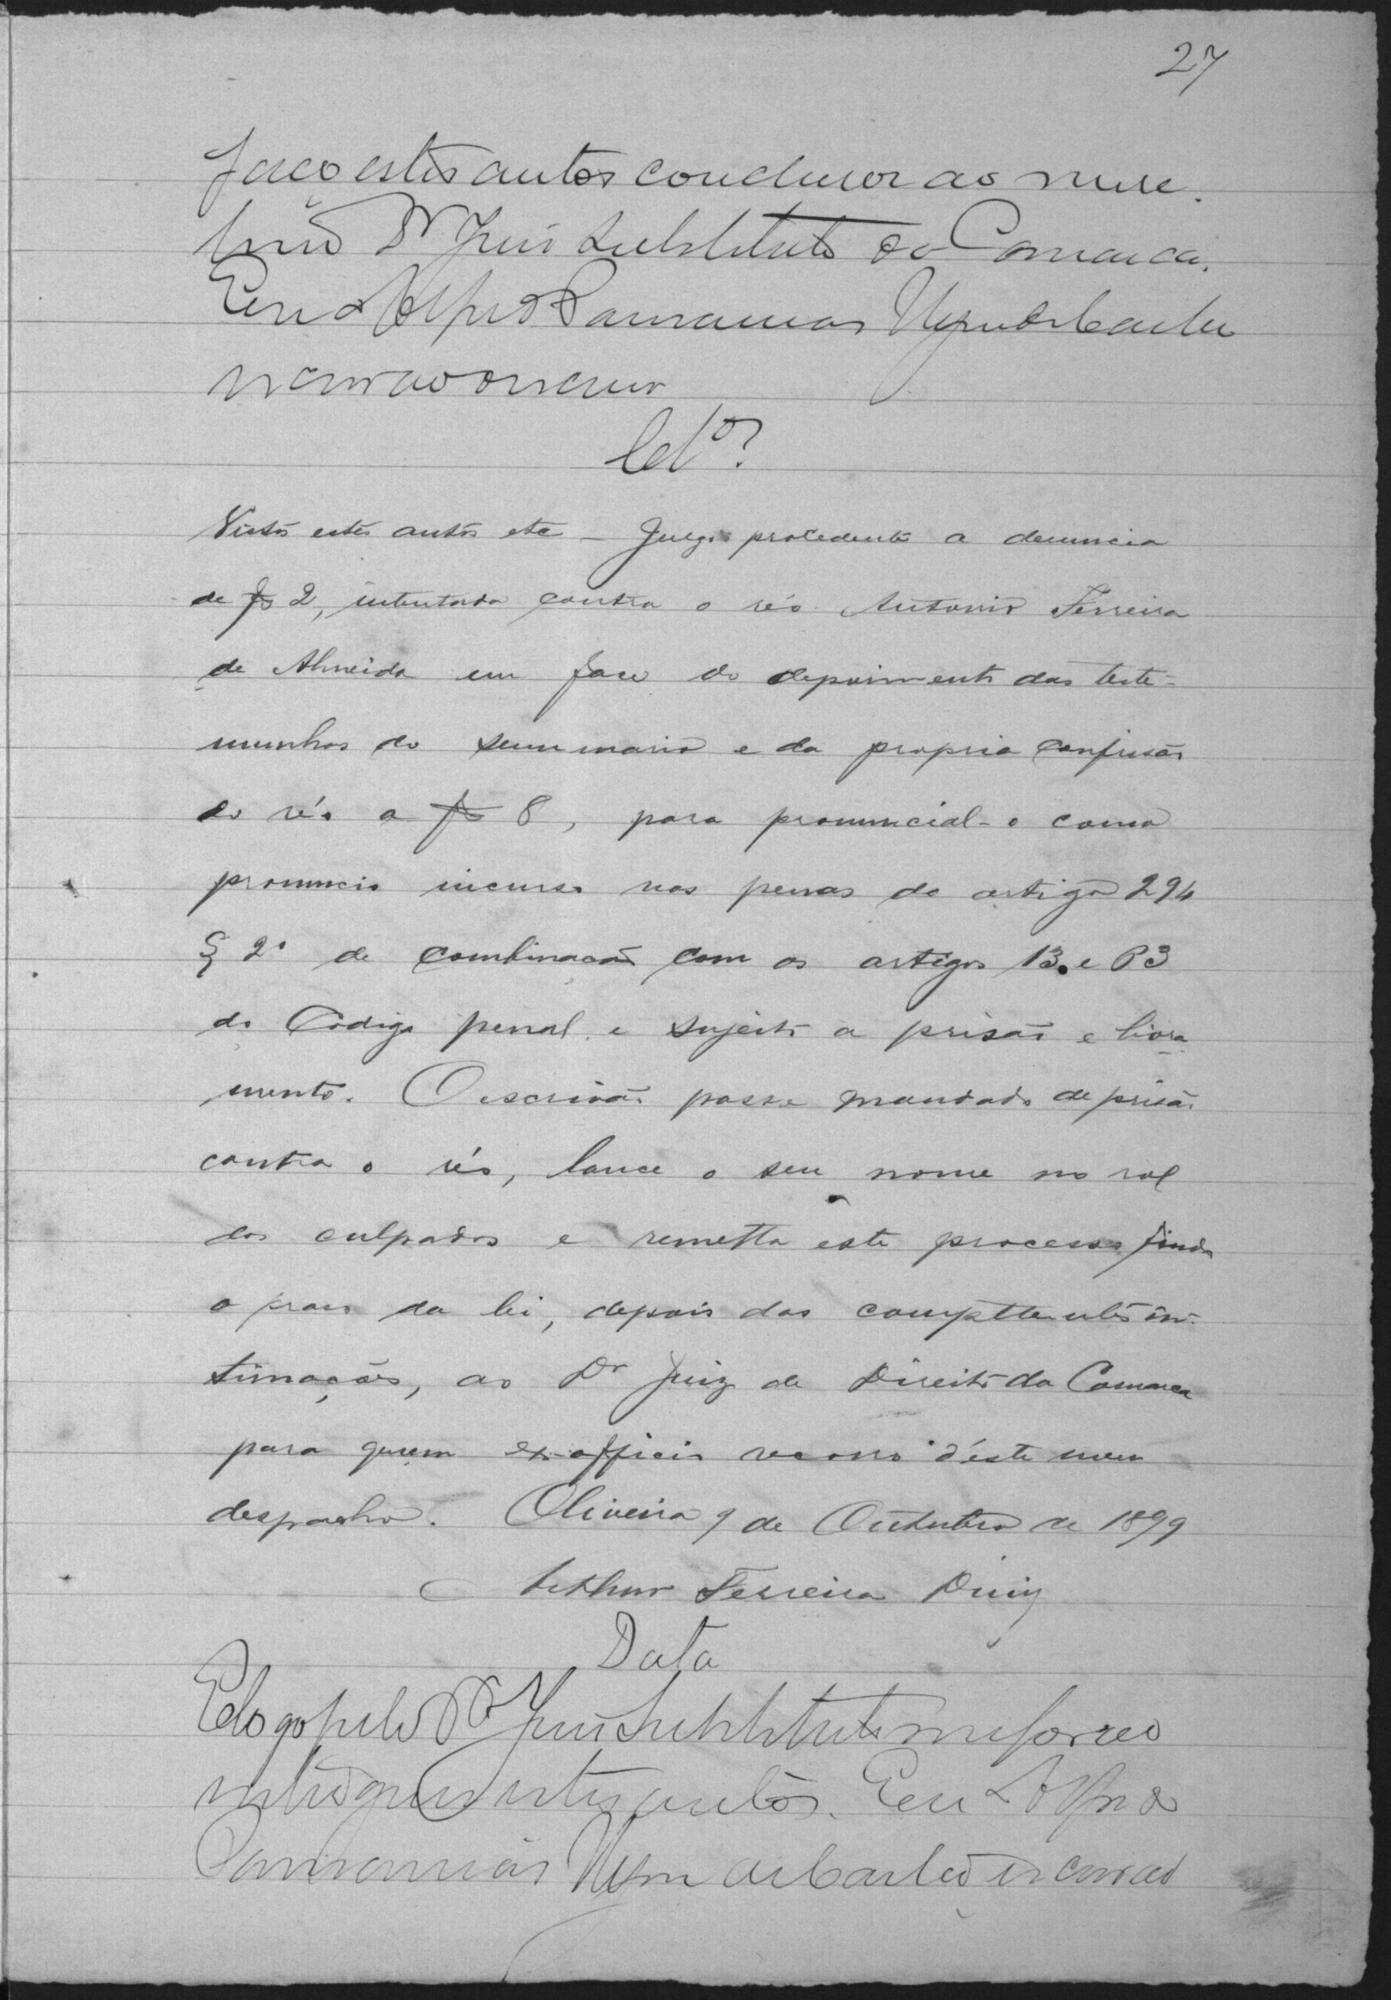 27
Faço estes autos conclusos ao mere
tissimo Dr Juiz Substituto da Comarca.
Eu
escrivão o escrevi
Clos
Vistos estes autos etc – Julgo procedente a denuncia
de fs 2, intentada contra o réo Antonio Ferreira
de Almeida em face do depoimento das teste-
munhas do summario e da propria confissão
do réo a fs 8, para pronuncial-o como
pronuncio incurso nas penas do artigo 294
§ 2º de combinação com os artigos 13 e 63
do Codigo penal e sujeito a prisão e livra
mento. O escrivão passe mandado de prisão
contra o réo, lance o seu nome no rol
dos culpados e remetta este processo, findo
o praso da lei, depois das competentes in-
timações, ao Dr Juiz de Direito da Comarca
para quem ex-officio recorro d'este meu
despacho. Oliveira 9 de Outubro de 1899
Arthur Ferreira Diniz
Data
E logo pelo Dr Juiz Substituto me forão
entregues estes autos. Eu
escrivão